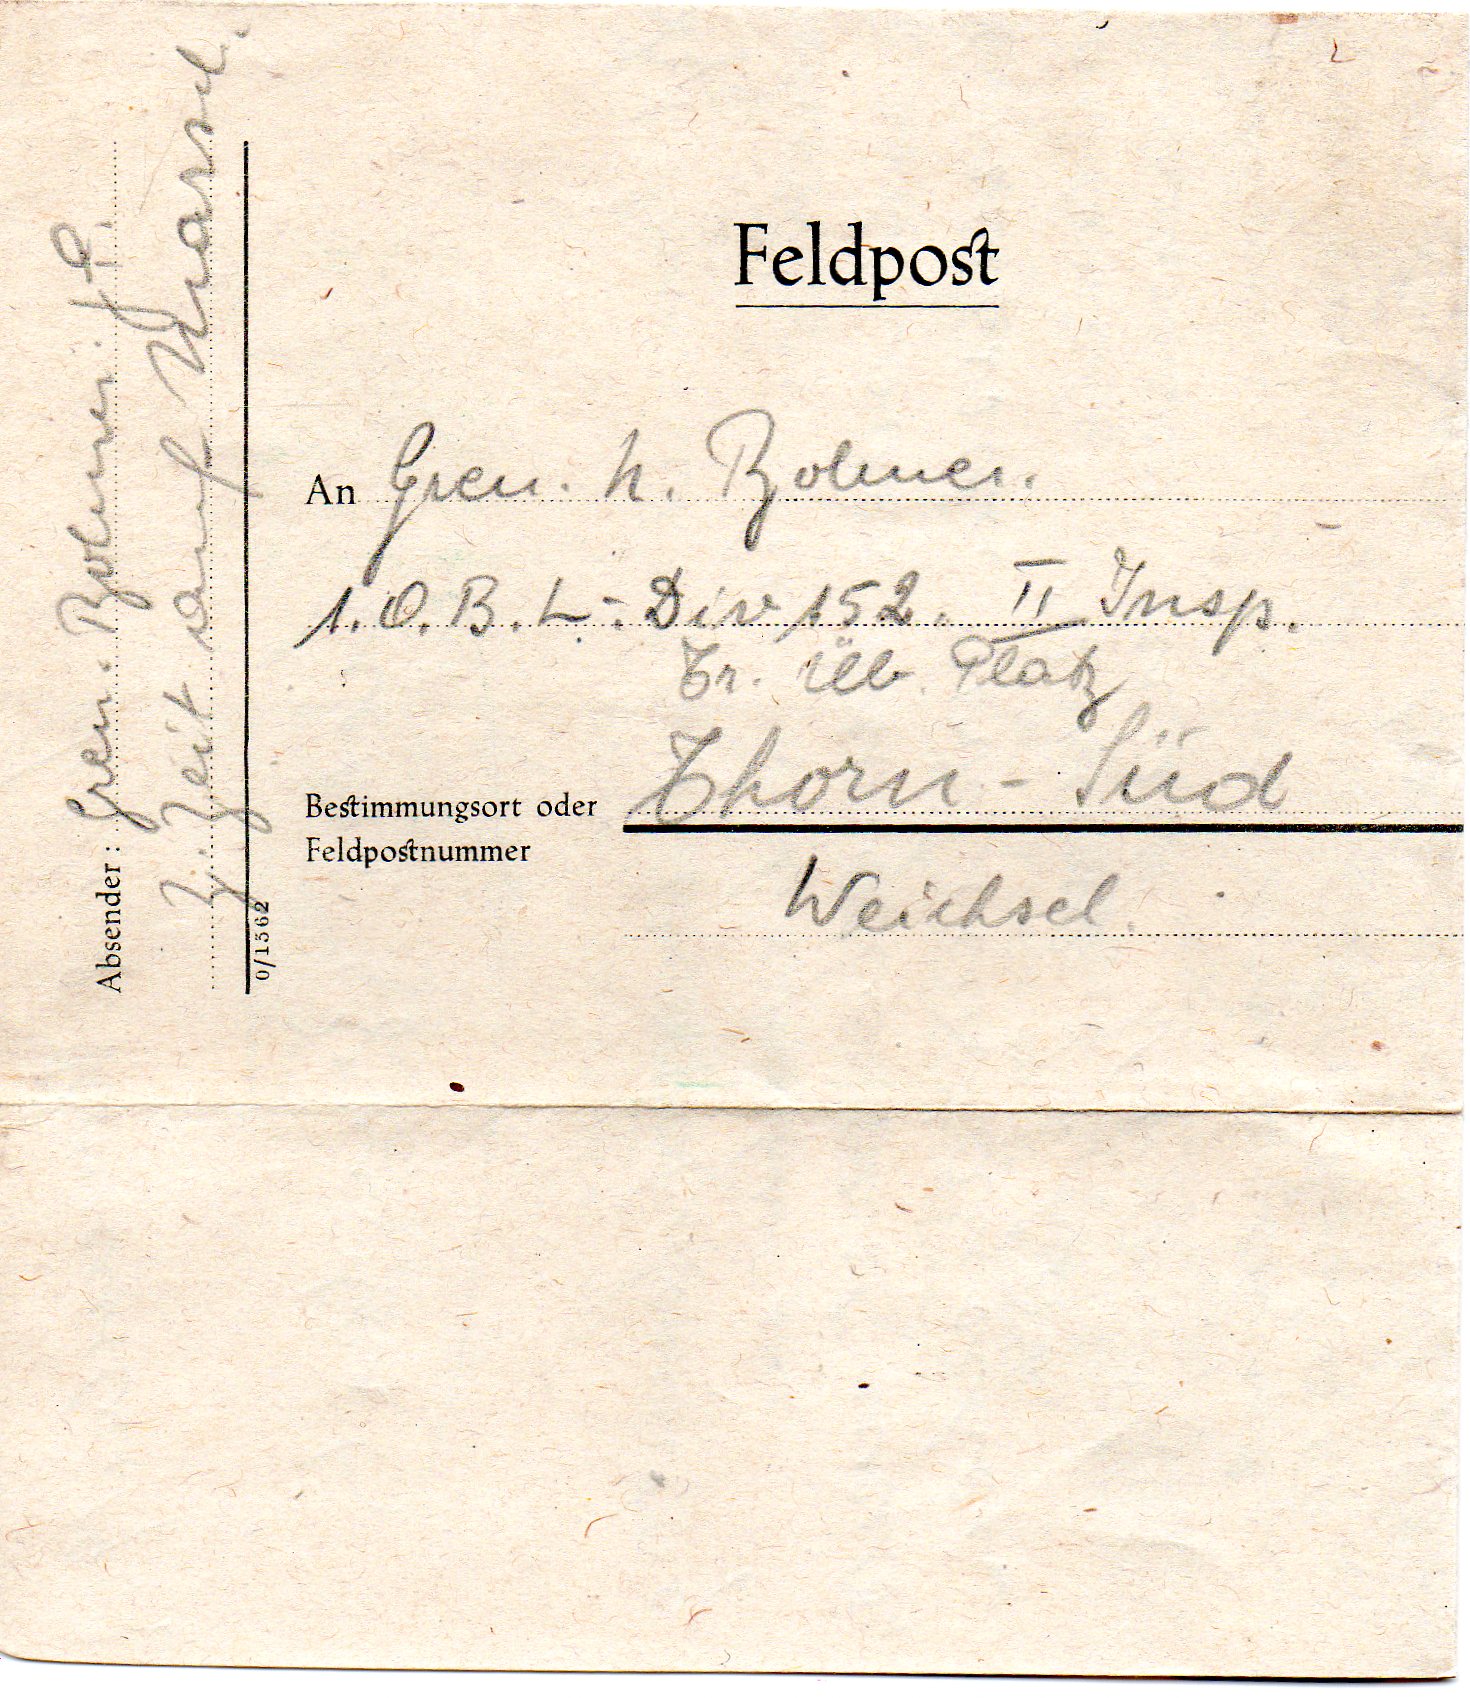 Feldpost
An Gren. H. Bolmer.
1. O. B. L. - Div 152. II Insp.
Tr. Üb. Platz
Bestimmungsort oder Thorn - Süd
Feldpostnummer
Weichsel.
Absender: Gren. Bolmer. F.
z. Zeit auf Marsch.
0/1562